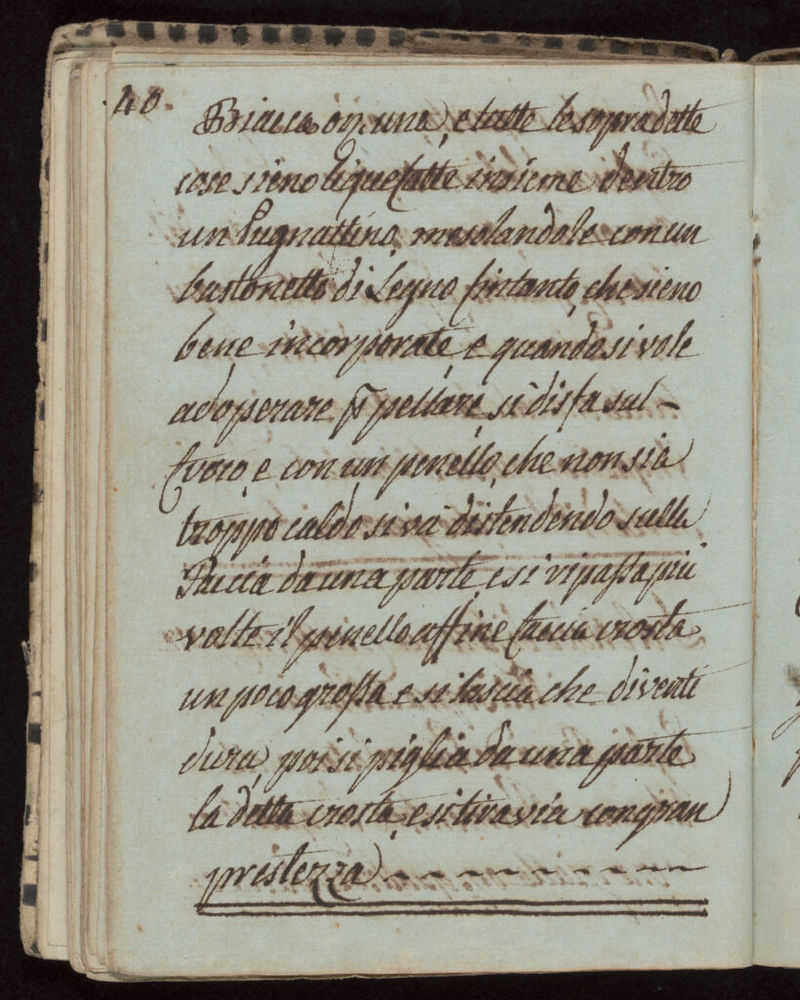 40.
Biacca on. una, e tutte le sopradette
cose sieno liquefatte insieme dentro
un Pugnattino, mesolandole con un
bastonetto di Legno sintanto, che sieno
bene incorporate, e quando si vole
adoperare p pellare, si disfa sul-
fuoco, e con un penello, che non sia
troppo caldo si va distendendo sulla
Faccia da una parte, e si vi passa più
volte il penello affine faccia crosta
un poco grossa e si lascia che diventi
dura, poi si piglia da una parte
la detta crosta, e si tira via con gran
prestezza